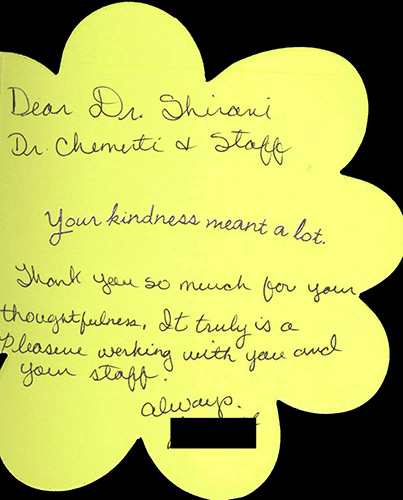 Dear Dr. Shirani
Dr. Chemerti & Staff
Your kindness meant a lot.
Thank you so much for your
thoughtfulness. It truly is a
Pleasure working with you and
your staff.
always.